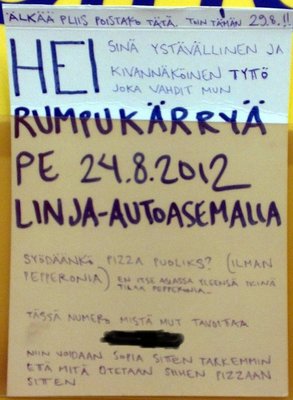 ÄLKÄÄ PLIIS POISTAKO TÄTÄ. TOIN TÄMÄN 29.8.!!
HEI SINÄ YSTÄVÄLLINEN JA
KIVANNÄKÖINEN TYTTÖ
JOKA VAHDIT MUN
RUMPUKÄRRYÄ
PE 24.8.2012
LINJA-AUTOASEMALLA
SYÖDÄÄNKÖ PIZZA PUOLIKS? (ILMAN
PEPPERONIA) EN ITSE ASIASSA YLEENSÄ IKINÄ
TILAA PEPPERONIA...
TÄSSÄ NUMERO MISTÄ MUT TAVOITTAA
NIIN VOIDAAN SOPIA SITTEN TARKEMMIN
ETÄ MITÄ OTETAAN SIIHEN PIZZAAN
SITTEN